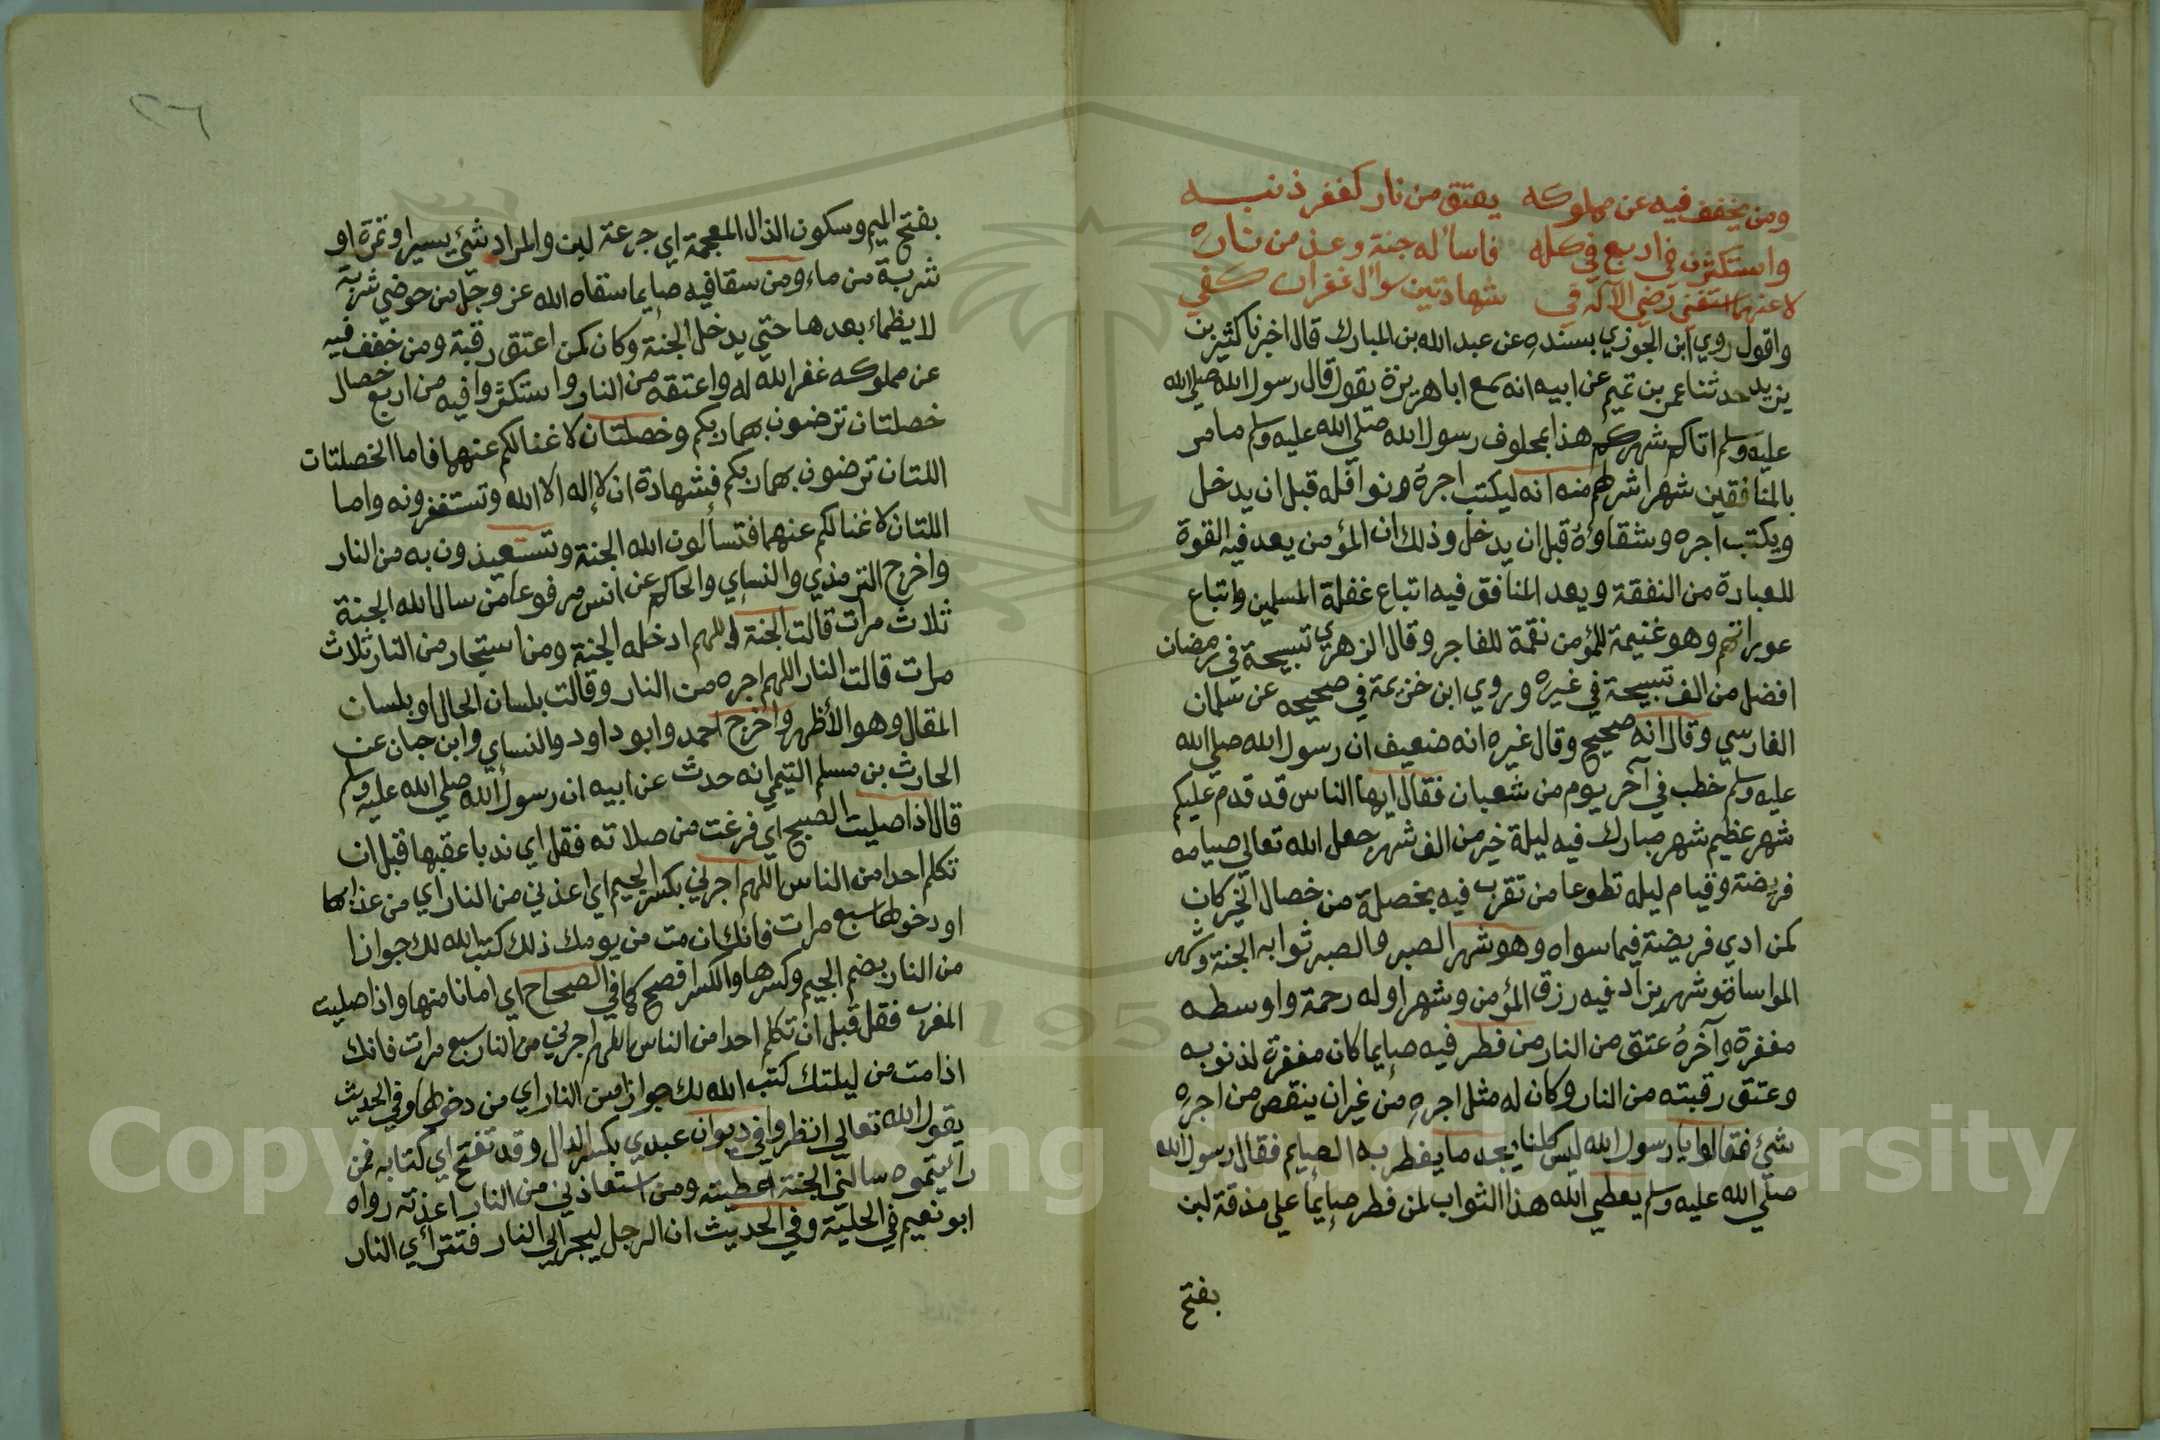 ومن يخفف فيه عن مملوكه يعتق من نار كغفر ذنبه
واستكثرن في اربع في كله فاسأله جنة وعذ من ناره
لا عنهما استغني رضي الاله في شهادتين سوال غفران كفي
واقول روي ابن الجوزي بسنده عن عبد الله بن المبارك قال اخبرنا كثير بن
يزيد حدثنا عمر بن تميم عن ابيه انه سمع ابا هريرة يقول قال رسول الله صلي الله
عليه وسلم اتاكم شهركم هذا بمحلوف رسول الله صلي الله عليه وسلم ما مر
بالمنافقين شهرا شر لهم منه انه ليكتب اجره ونوافله قبل ان يدخل
ويكتب اجره وشقاؤه قبل ان يدخل وذلك ان المؤمن يعد فيه القوة
للعبادة من النفقة ويعد المنافق فيه اتباع غفلة المسلمين واتباع
عوراتهم وهو غنيمة للمؤمن نقمة للفاجر وقال الزهري تسبيحة في رمضان
افضل من الف تسبيحة في غيره وروي ابن خزيمة في صحيحه عن سلمان
الفارسي وقال انه صحيح وقال غيره انه ضعيف ان رسول الله صلي الله
عليه وسلم خطب في آخر يوم من شعبان فقال ايها الناس قد قدم عليكم
شهر عظيم شهر مبارك فيه ليلة خير من الف شهر جعل الله تعالي صيامه
فريضة وقيام ليله تطوعا من تقرب فيه بخصلة من خصال الخير كان
كمن ادي فريضة فيما سواه وهو شهر الصبر والصبر ثوابه الجنة وشهر
المواساة وشهر يزاد فيه رزق المؤمن وشهر اوله رحمة واوسطه
مغفرة وآخره عتق من النار من فطر فيه صايما كان مغفرة لذنوبه
وعتق رقبته من النار وكان له مثل اجره من غير ان ينقص من اجره
شئ فقالوا يا رسول الله ليس كلنا يجد ما يفطر به الصايم فقال رسول الله
صلي الله عليه وسلم يعطي الله هذا الثواب لمن فطر صايما علي مذقة لبن
بفتح
٢٦
بفتح الميم وسكون الذال المعجمة اي جرعة لبن والمراد شئ يسير او تمرة او
شربة من ماء ومن سقا فيه صايما سقاه الله عز وجل من حوضي شربة
لا يظماء بعدها حتي يدخل الجنة وكان كمن اعتق رقبة ومن خفف فيه
عن مملوكه غفر الله له واعتقه من النار واستكثروا فيه من اربع خصال
خصلتان ترضون بهما ربكم وخصلتان لا غنا لكم عنهما فاما الخصلتان
اللتان ترضون بهما ربكم فشهادة ان لا إله الا الله وتستغفرونه واما
اللتان لا غنا لكم عنهما فتسألون الله الجنة وتستعيذون به من النار
واخرج الترمذي والنساي والحاكم عن انس مرفوعا من سال الله الجنة
ثلاث مرات قالت الجنة اللهم ادخله الجنة ومن استجار من النار ثلاث
مرات قالت النار اللهم اجره من النار وقالت بلسان الحال او بلسان
المقال وهو الأظهر واخرج احمد وابو داود والنساي وابن حبان عن
الحارث بن مسلم التيمي انه حدث عن ابيه ان رسول الله صلي الله عليه وسلم
قال اذا صليت الصبح اي فرغت من صلاته فقل اي ندبا عقبها قبل ان
تكلم احدا من الناس اللهم اجرني بكسر الجيم اي اعذني من النار اي من عذابها
او دخولها سبع مرات فانك ان مت من يومك ذلك كتب الله لك جوازا
من النار بضم الجيم وكسرها والكسر افصح كما في الصحاح اي امانا منها واذا صليت
المغرب فقل قبل ان تكلم احدا من الناس اللهم اجرني من النار سبع مرات فانك
اذا مت من ليلتك كتب الله لك جوازا من النار اي من دخولها وفي الحديث
يقول الله تعالي انظروا في ديوان عبدي بكسر الدال وقد تفتح اي كتابه فمن
رأيتموه سالني الجنة اعطيته ومن استعاذ بي من النار اعذته رواه
ابو نعيم في الحلية وفي الحديث ان الرجل ليجر الي النار فتترأي النار